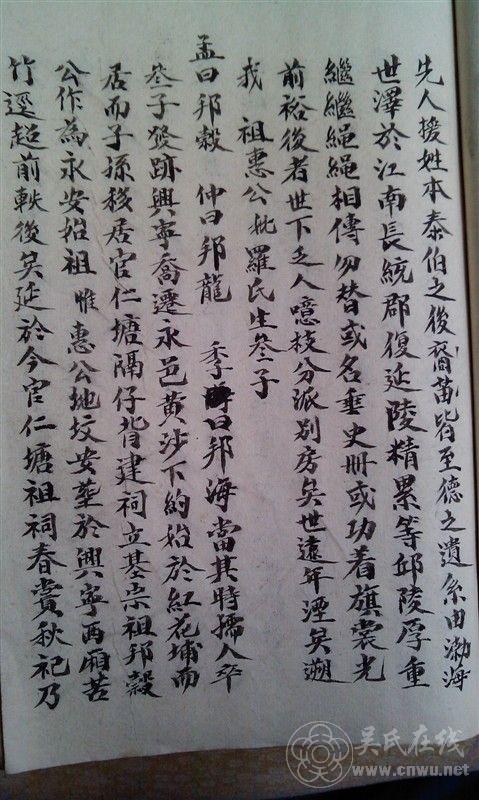 先人援姓本泰伯之後裔苗皆至德之遺系由渤海
世澤於江南長統郡復延陵精累等邱陵厚重
繼繼繩繩相傳勿替或名垂史冊或功着旗裳光
前裕後者世下乏人噫枝分派別房矣世遠年湮矣溯
我 祖惠公妣羅氏生叁子
孟曰邦穀 仲曰邦龍 季曰邦海當其時孺人卒
叁子發跡興寧喬遷永邑黃沙下約始於紅花埔而
居而子孫移居官仁塘隔仔背建祠立基宗祖邦穀
公作為永安始祖 惟惠公地坟安塟於興寧西廂苦
竹逕超前軼後矣延於今官仁塘祖祠春嘗秋祀乃
吴氏在线
www.cnwu.net